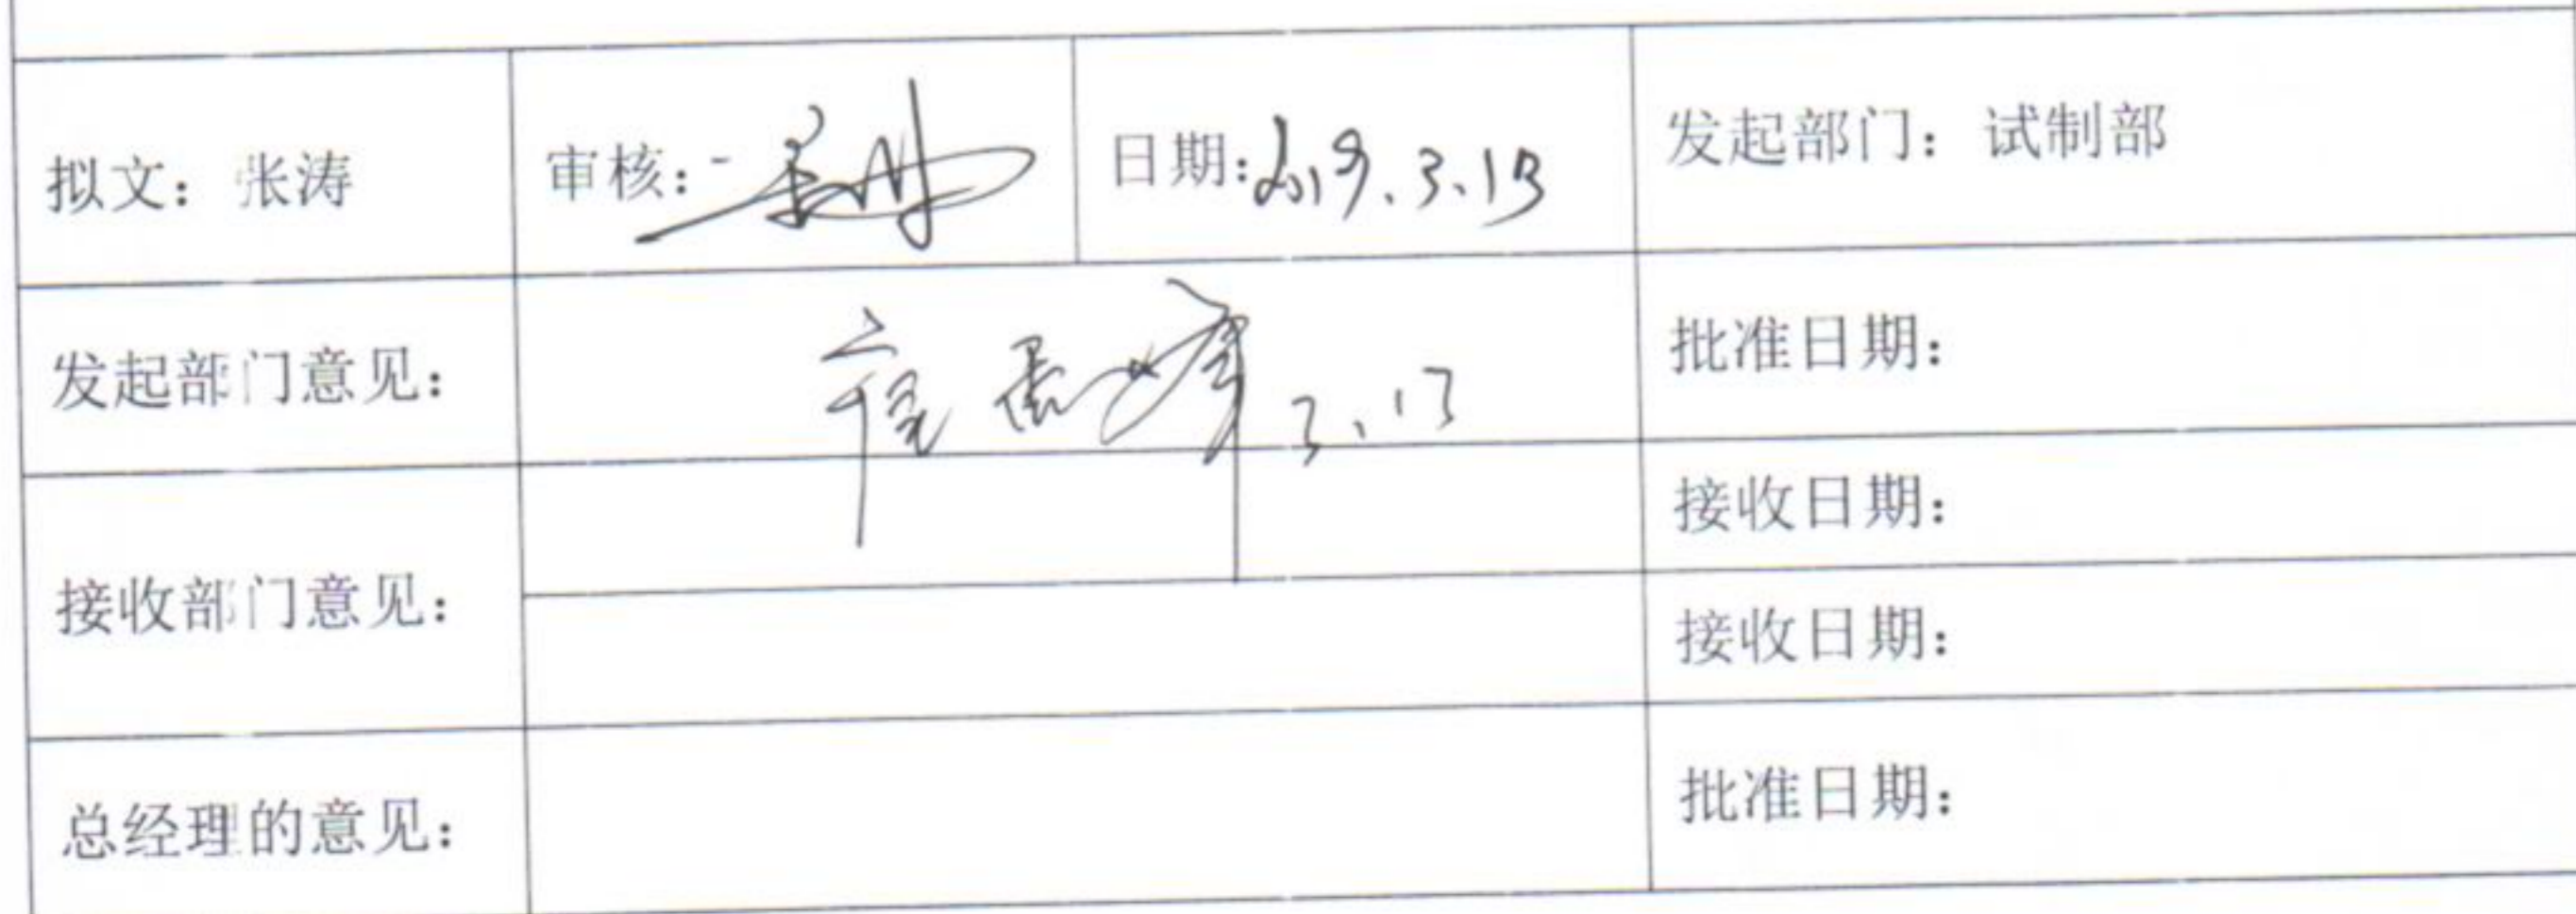 拟文：张涛 审核： 日期：2019.3.13 发起部门：试制部
发起部门意见： 3.13 批准日期：
接收日期：
接收部门意见：
接收日期：
总经理的意见： 批准日期：